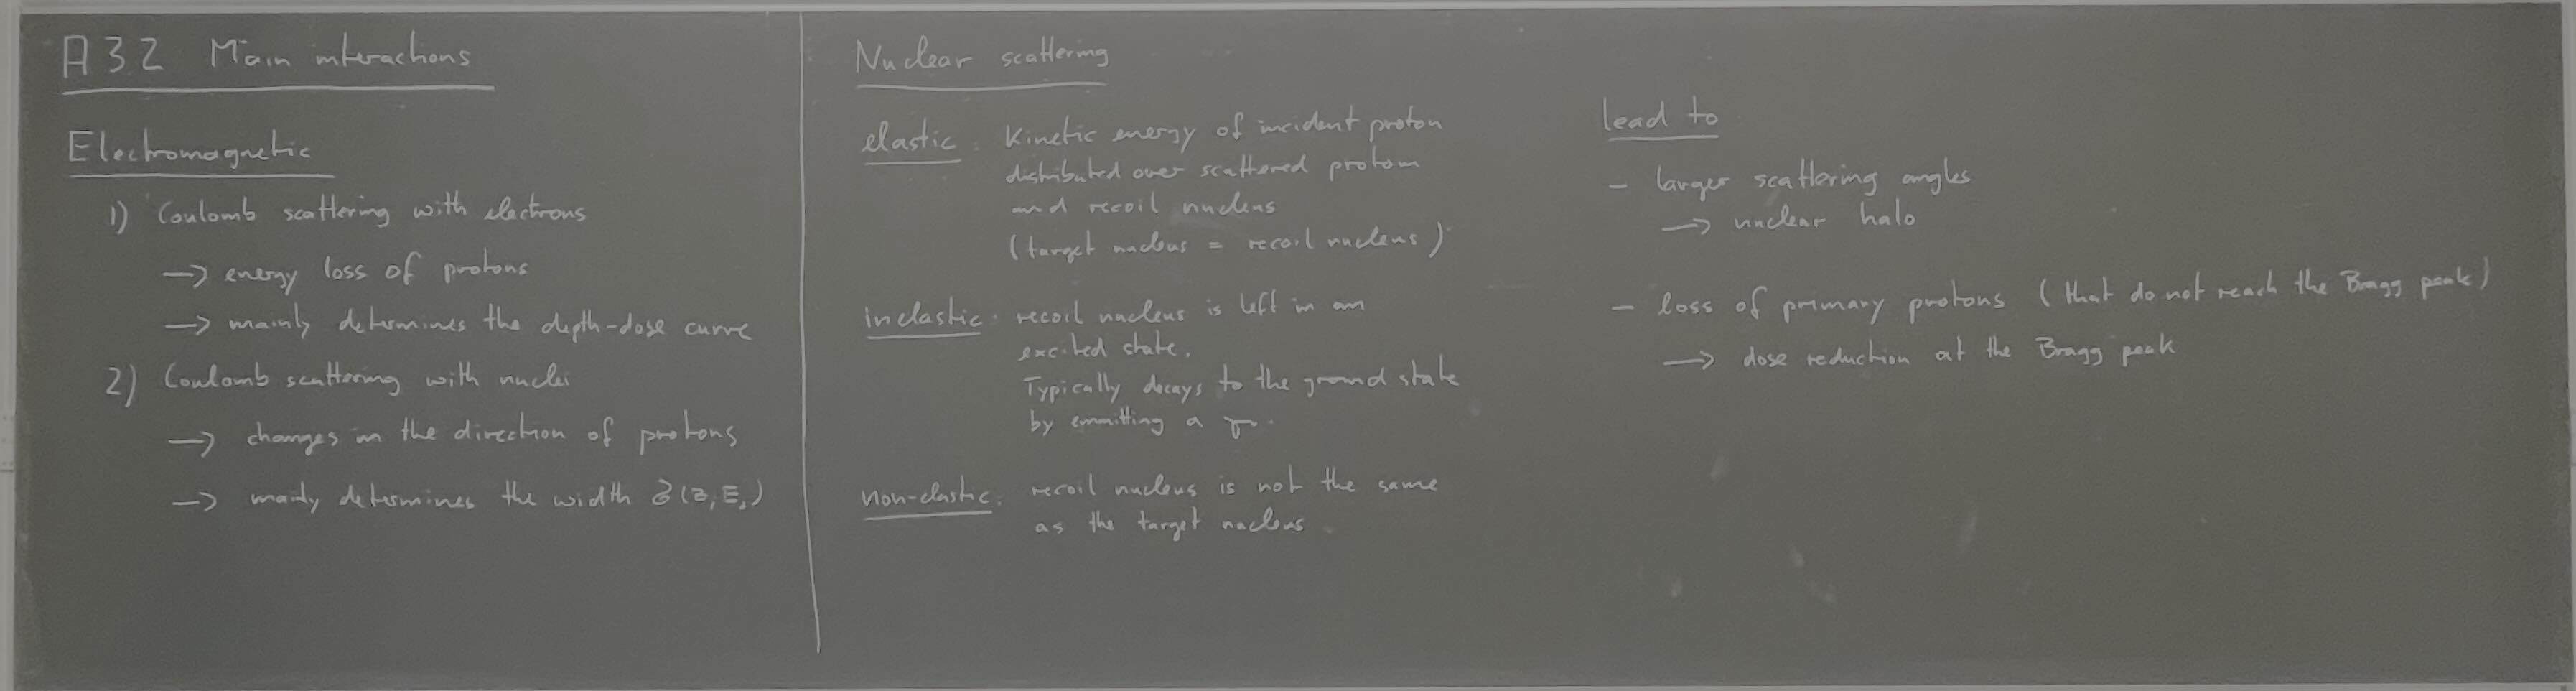 A 3.2 Main interactions
Electromagnetic
1) Coulomb scattering with electrons
→ energy loss of protons
→ mainly determines the depth-dose curve
2) Coulomb scattering with nuclei
→ changes in the direction of protons
→ mainly determines the width
Nuclear scattering
elastic: Kinetic energy of incident proton
distributed over scattered proton
and recoil nucleus
(target nucleus = recoil nucleus)
inelastic: recoil nucleus is left in an
excited state.
Typically decays to the ground state
by emmitting a γ.
non-elastic: recoil nucleus is not the same
as the target nucleus
lead to
- larger scattering angles
→ nuclear halo
- loss of primary protons (that do not reach the Bragg peak)
→ dose reduction at the Bragg peak